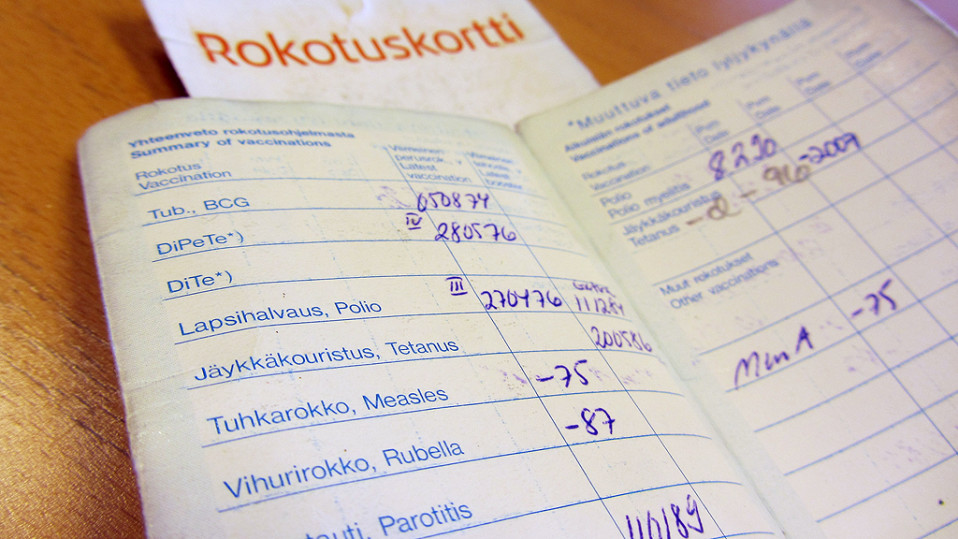 Rokotuskortti
Yhteenveto rokotusohjelmasta
Summary of vaccinations
Rokotus
Vaccination
Latest
vaccination
Latest
booster
Tub., BCG 050874
DiPeTe*) IV 280576
DiTe*)
Lapsihalvaus, Polio III 270476 111284
Jäykkäkouristus, Tetanus 200586
Tuhkarokko, Measles -75
Vihurirokko, Rubella -87
Parotitis
*Muuttuva tieto lyijykynällä
Aikuisiän rokotukset
Vaccinations of adulthood
Rokotus
Vaccination
Pvm
Date
Pvm
Date
Pvm
Date
Polio
Polio myelitis
Jäykkäkouristus
Tetanus -96 -2009
Muut rokotukset
Other vaccinations
Men A -75